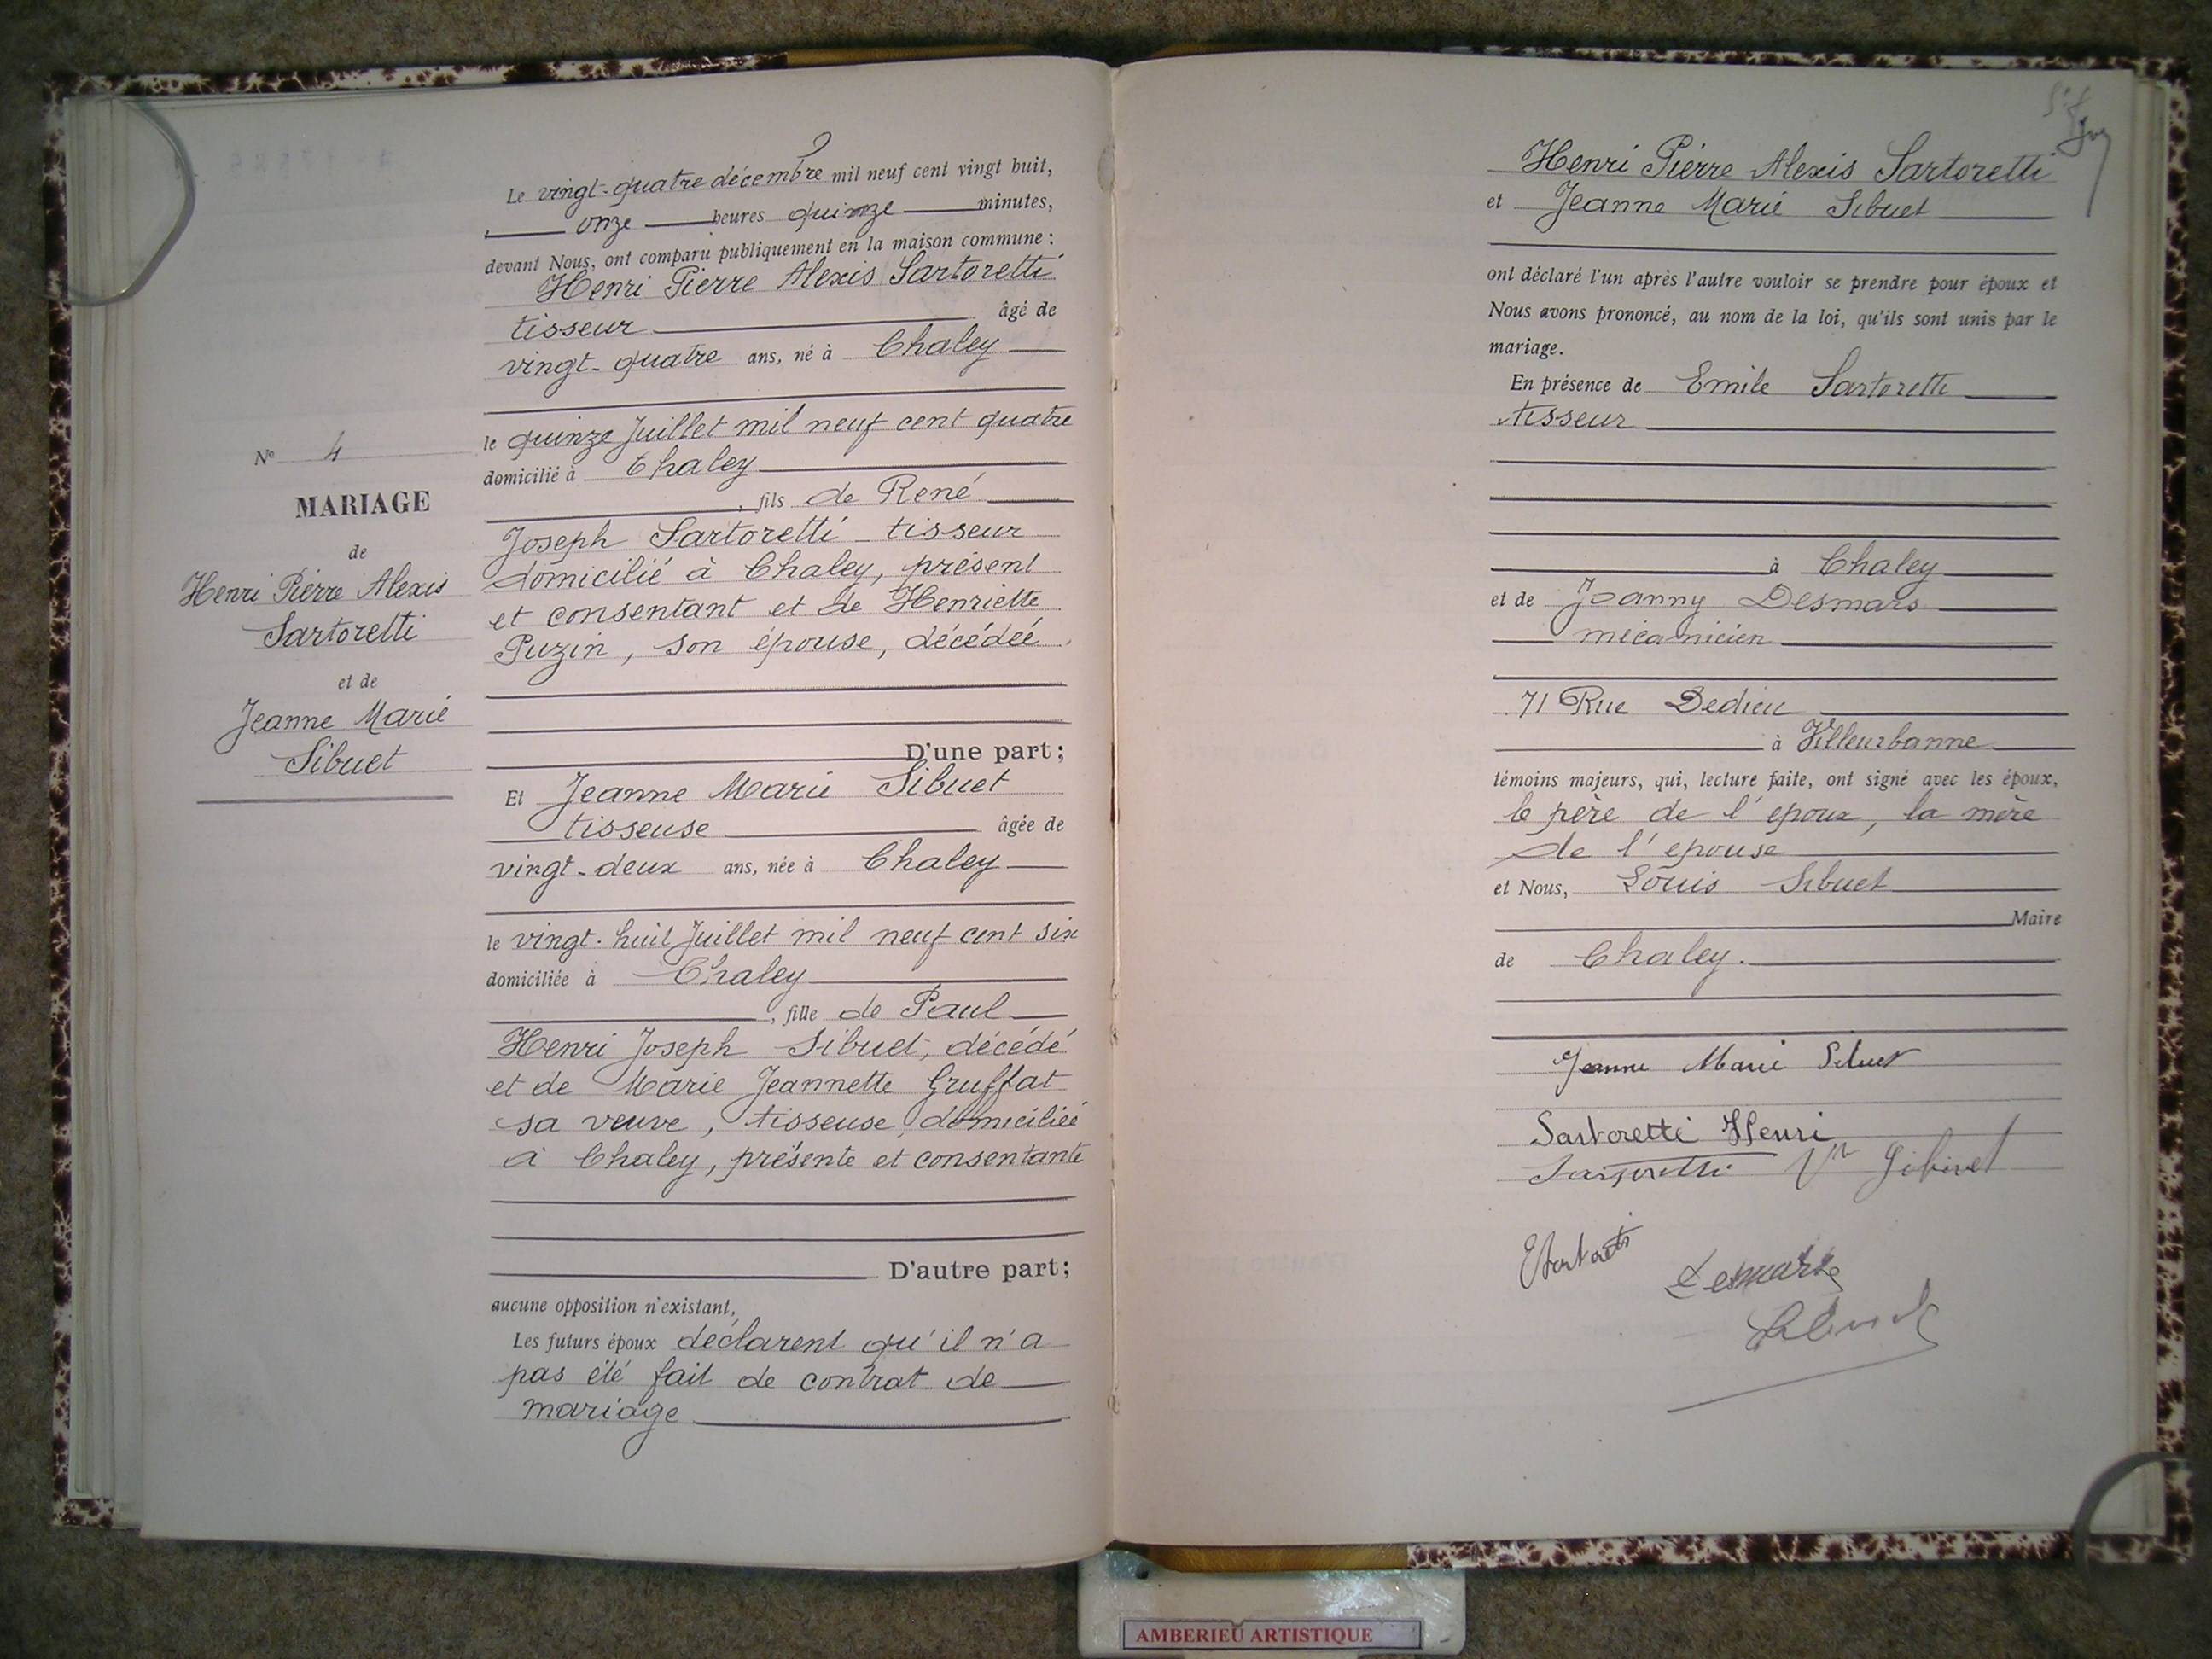 Nº 4
MARIAGE
de
Henri Pierre Alexis
Sartoretti
et de
Jeanne Marie
Sibuet
Le vingt-quatre décembre mil neuf cent vingt huit,
onze heures quinze minutes,
devant Nous, ont comparu publiquement en la maison commune :
Henri Pierre Alexis Sartoretti
tisseur âgé de
vingt-quatre ans, né à Chaley
le quinze Juillet mil neuf cent quatre
domicilié à Chaley
, fils de René
Joseph Sartoretti tisseur
domicilié à Chaley, présent
et consentant et de Henriette
Puzin, son épouse, décédée
D'une part;
Et Jeanne Marie Sibuet
tisseuse âgée de
vingt-deux ans, née à Chaley
le vingt-huit Juillet mil neuf cent six
domiciliée à Chaley
, fille de Paul
Henri Joseph Sibuet, décédé
et de Marie Jeannette Gruffat
sa veuve, tisseuse, domiciliée
à Chaley, présente et consentante
D'autre part;
aucune opposition n'existant,
Les futurs époux déclarent qu'il n'a
pas été fait de contrat de
mariage
Henri Pierre Alexis Sartoretti
et Jeanne Marie Sibuet
ont déclaré l'un après l'autre vouloir se prendre pour époux et
Nous avons prononcé, au nom de la loi, qu'ils sont unis par le
mariage.
En présence de Emile Sartoretti
tisseur
à Chaley
et de Joanny Desmars
mécanicien
71 Rue Dedieu
à Villeurbanne
témoins majeurs, qui, lecture faite, ont signé avec les époux,
le père de l'epoux, la mère
de l'epouse
et Nous, Louis Sibuet
Maire
de Chaley.
Jeanne Marie Sibuet
Sartoretti Henri
Sartoretti Vve Sibuet
ESartoretti
Desmars
Sibuet
AMBERIEU ARTISTIQUE